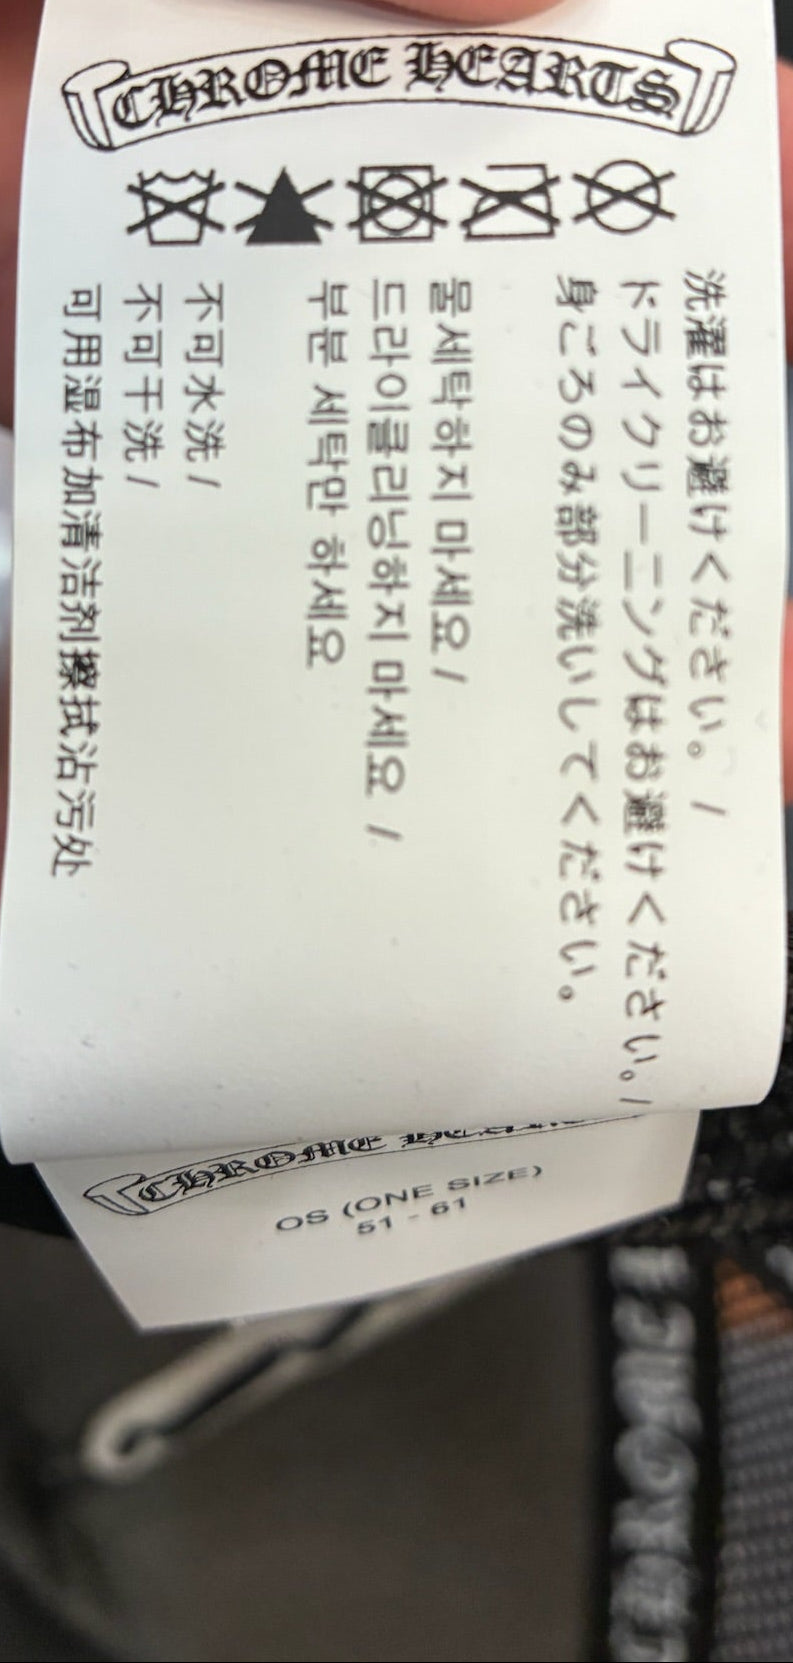 CHROME HEARTS
洗濯はお避けください。 /
ドライクリーニングはお避けください。/
身ごろのみ部分洗いしてください。
물세탁하지 마세요 /
드라이클리닝하지 마세요 /
부분 세탁만 하세요
不可水洗 /
不可干洗 /
可用湿布加清洁剂擦拭沾污处
CHROME HEARTS
OS (ONE SIZE)
51 - 61